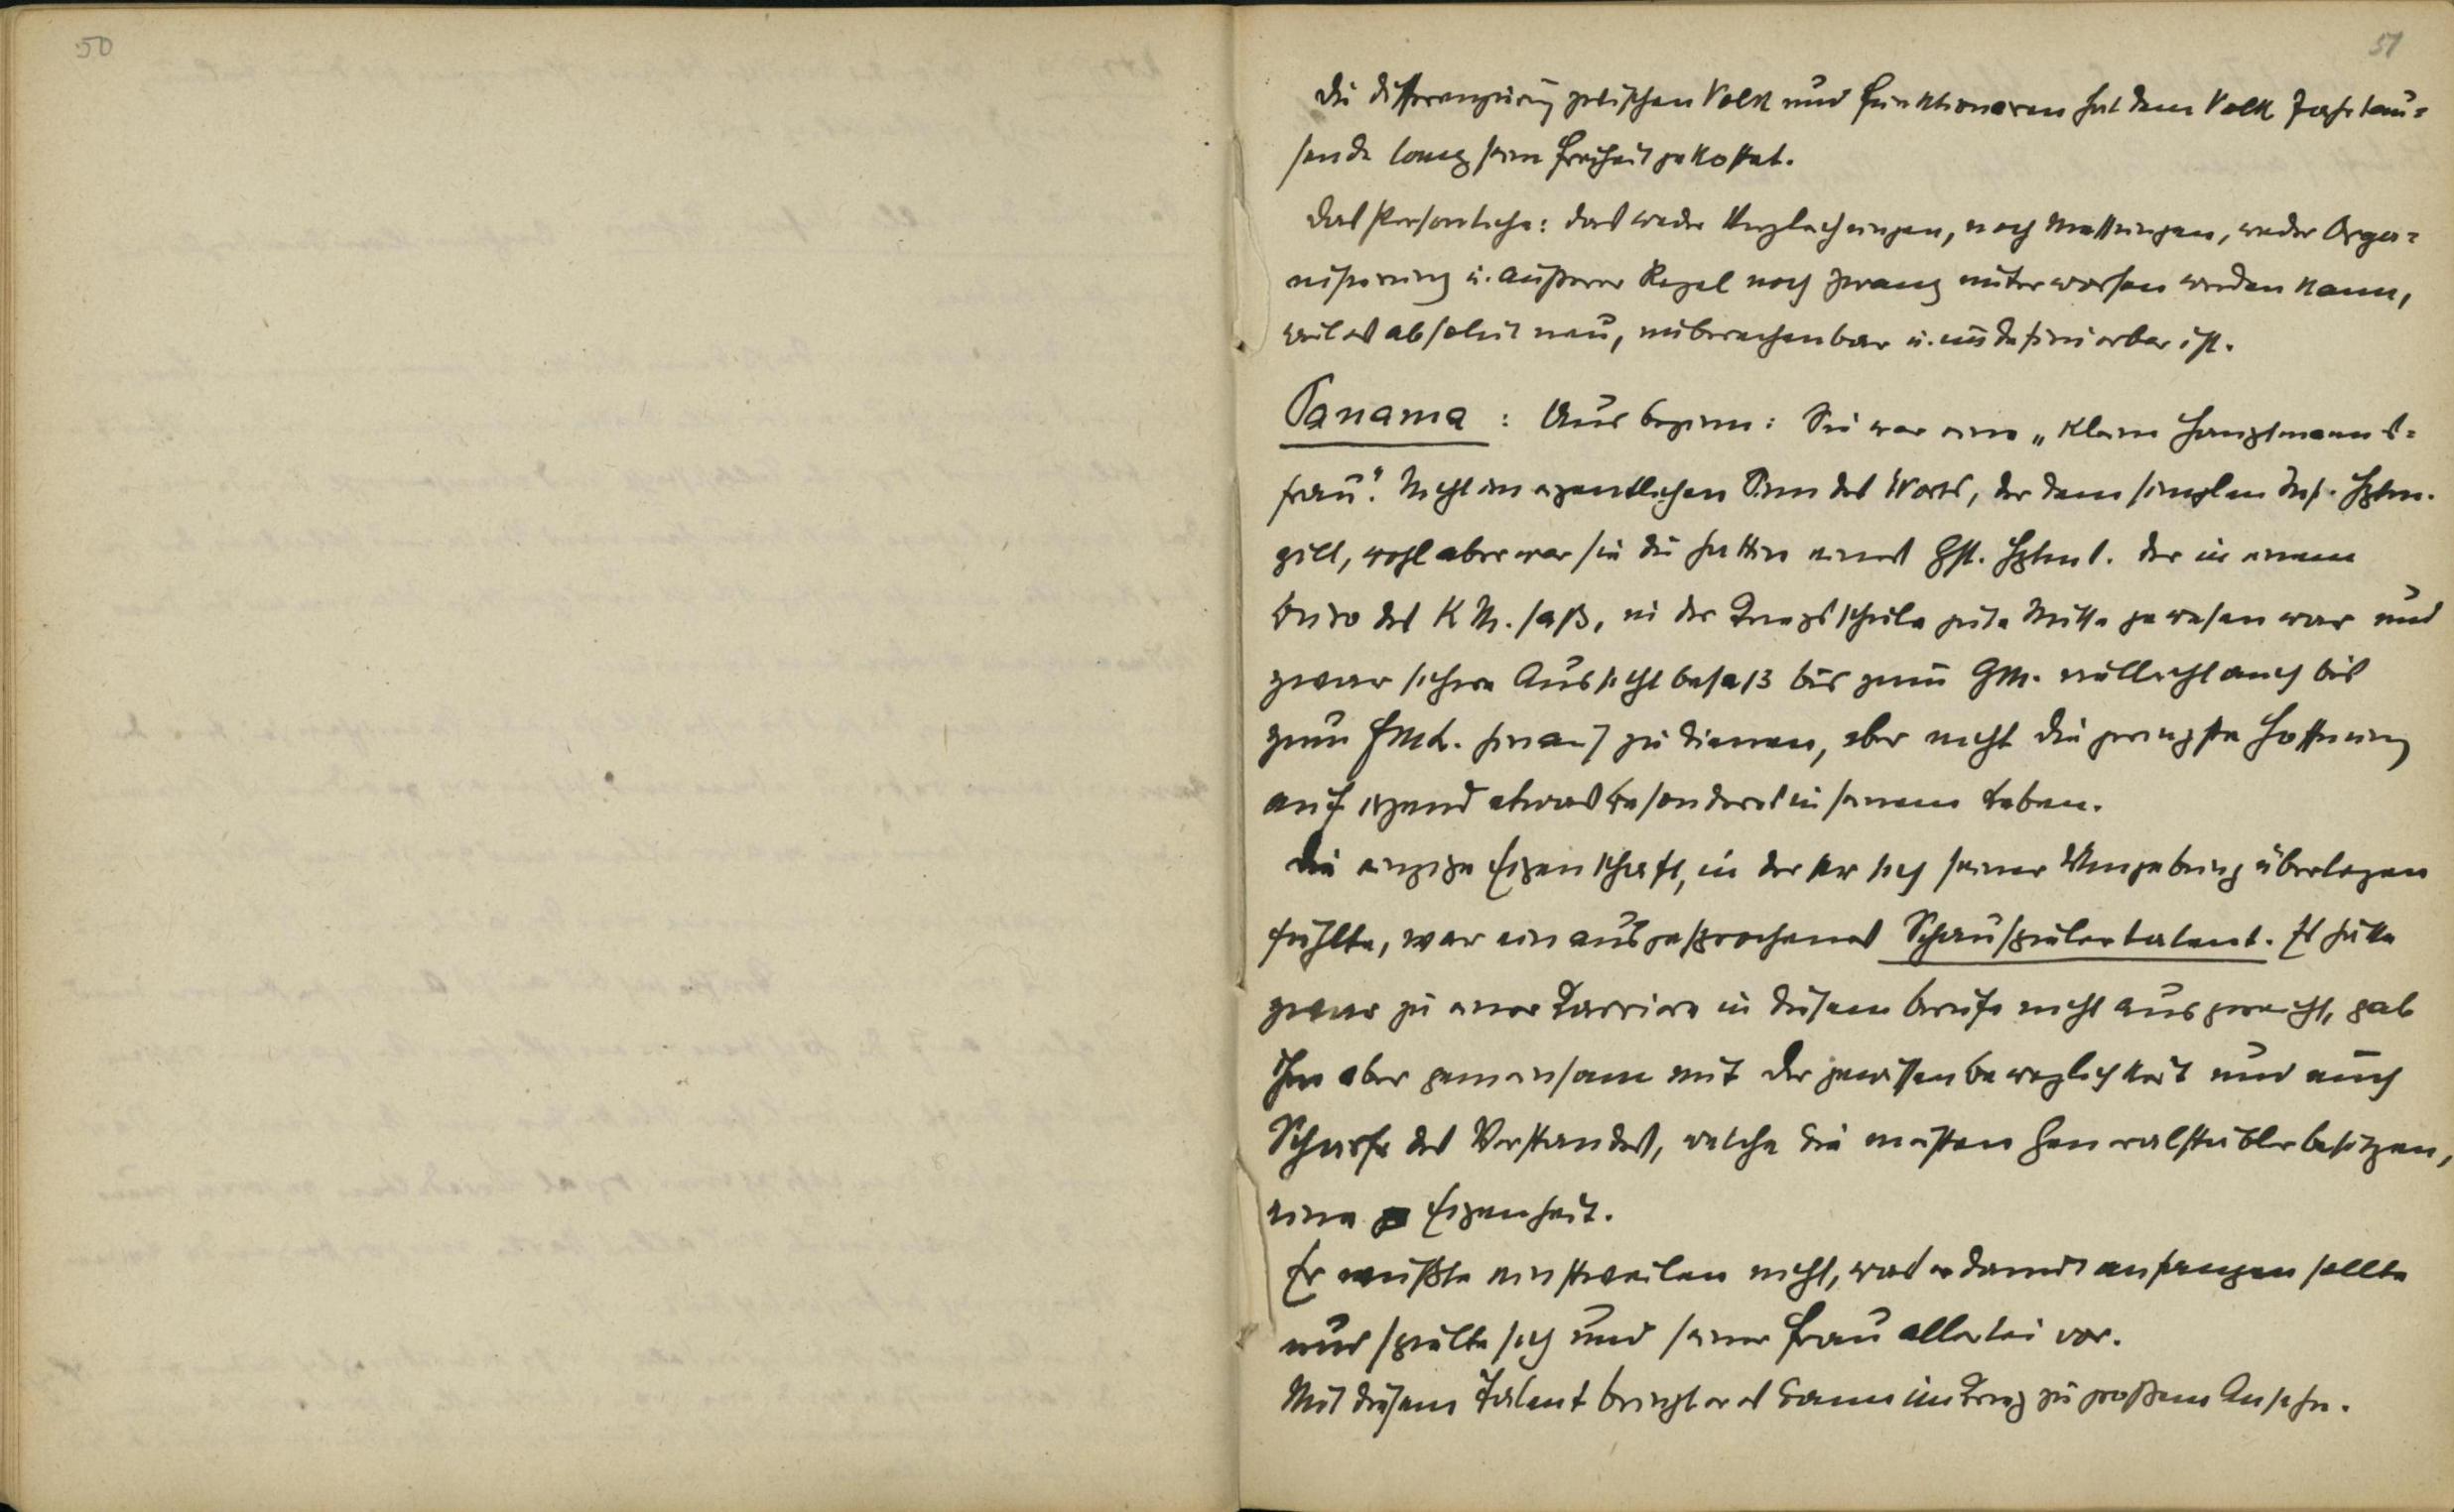 50
51
Die Differenzirung zwischen Volk und Funktionären hat dem Volk Jahrtau=
sende lang seine Freiheit gekostet.
Das Persönliche: das weder Vergleichungen, noch Messungen, weder Orga=
nisierung u. äußerer Regel noch Zwang unterworfen werden kann,
weil es absolut neu, unberechenbar u. undefinierbar ist.
Panama: Aus beginn: Sie war eine „kleine Hauptmanns=
frau". Nicht im eigentlichen Sinn des Worts, der dem simplen Inf. Hptm.
gilt, wohl aber war sie die Gattin eines Gst. Hptms. der in einem
Büro des KM. saß, in der Kriegsschule gute Mitte gewesen war und
zwar sichere Aussicht besaß bis zum GM. vielleicht auch bis
zum FML. hinauf zu dienen, aber nicht die geringste Hoffnung
auf irgend etwas besonderes in seinem Leben.
Die einzige Eigenschaft, in der er sich seiner Umgebung überlegen
fühlte, war ein ausgesprochenes Schauspielertalent. Es hätte
zwar zu einer Karriere in diesem Berufe nicht ausgereicht, gab
ihm aber gemeinsam mit der gewissen Beweglichkeit und auch
Schärfe des Verstandes, welche die meisten Generalstäbler besitzen,
eine Eigenheit.
Er wußte einstweilen nicht, was er damit anfangen sollte
und spielte sich und seiner Frau allerlei vor.
Mit diesem Talent bringt er es dann im Krieg zu großem Ansehn.